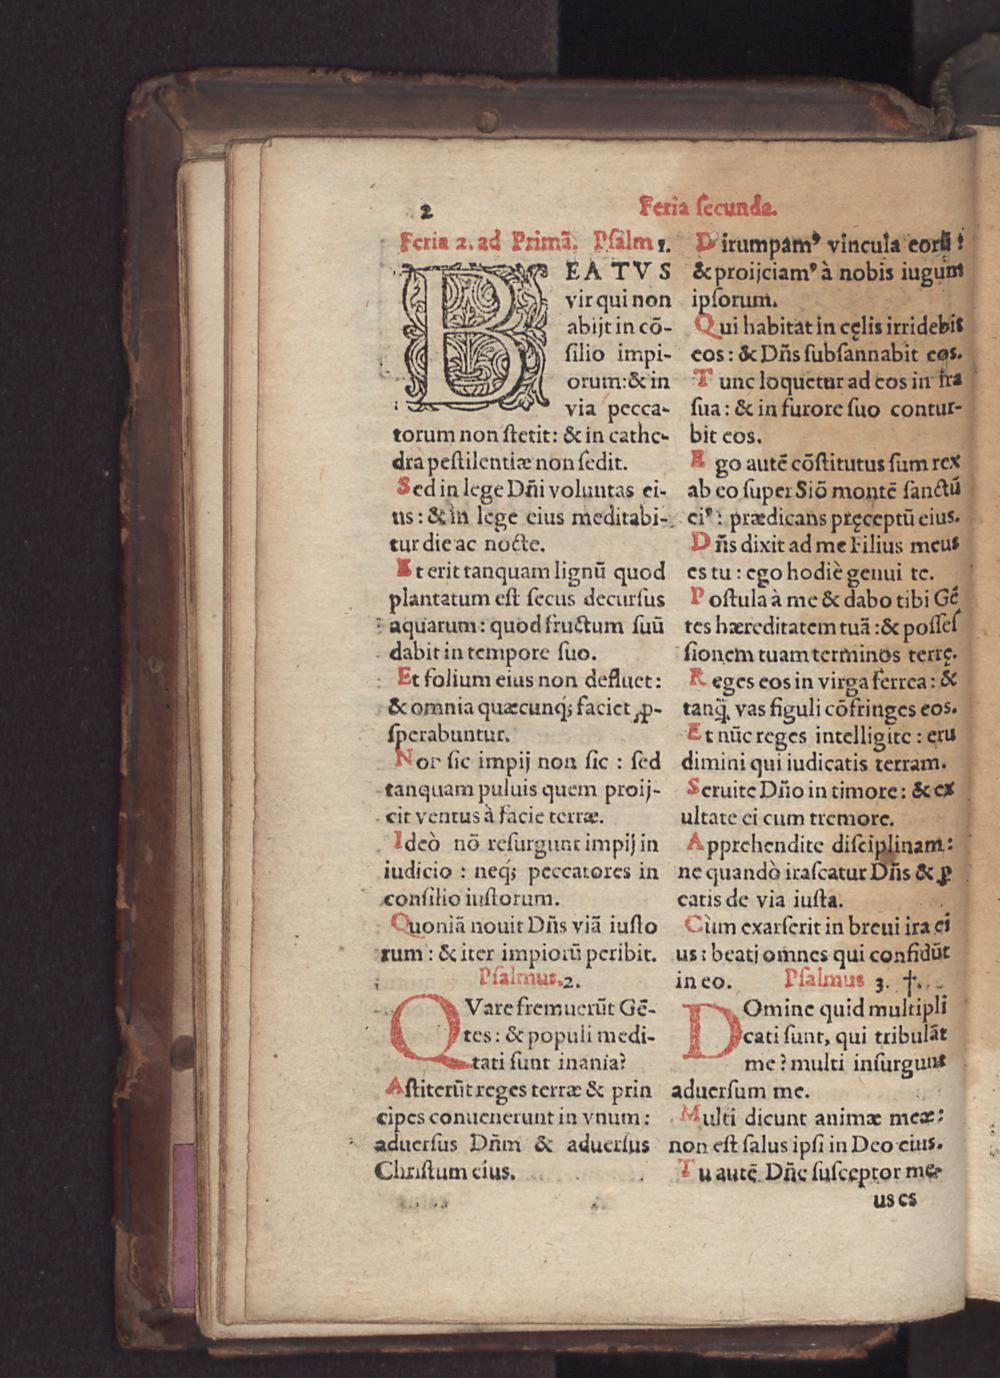 2
Feria secunda.
Feria 2. ad Primã. Psalm 1.
BEATVS
vir qui non
abijt in cõ-
silio impi-
orum: & in
via pecca-
torum non stetit: & in cathe-
dra pestilentiæ non sedit.
Sed in lege Dñi voluntas ei-
us: & in lege eius meditabi-
tur die ac nocte.
Et erit tanquam lignũ quod
plantatum est secus decursus
aquarum: quod fructum suũ
dabit in tempore suo.
Et folium eius non defluet:
& omnia quæcunq; faciet ꝓ-
sperabuntur.
Non sic impij non sic : sed
tanquam puluis quem proij-
cit ventus à facie terræ.
Ideò nõ resurgunt impij in
iudicio : neq; peccatores in
consilio iustorum.
Quoniã nouit Dñs viã iusto
rum : & iter impiorũ peribit.
Psalmus. 2.
QVare fremuerũt Gẽ-
tes : & populi medi-
tati sunt inania?
Astiterũt reges terræ & prin
cipes conuenerunt in vnum:
aduersus Dñm & aduersus
Christum eius.
Dirumpamꝰ vincula eorũ :
& proijciamꝰ à nobis iugum
ipsorum.
Qui habitat in cęlis irridebit
eos : & Dñs subsannabit eos.
Tunc loquetur ad eos in ira
sua : & in furore suo contur-
bit eos.
Ego autẽ cõstitutus sum rex
ab eo super Siõ montẽ sanctũ
eiꝰ : prædicans pręceptũ eius.
Dñs dixit ad me Filius meus
es tu : ego hodiè genui te.
Postula à me & dabo tibi Gẽ
tes hæreditatem tuã : & posses
sionem tuam terminos terrę.
Reges eos in virga ferrea : &
tanq̃ vas figuli cõfringes eos.
Et nũc reges intelligite : eru
dimini qui iudicatis terram.
Seruite Dño in timore : & ex
ultate ei cum tremore.
Apprehendite disciplinam:
ne quandò irascatur Dñs & ꝑ
eatis de via iusta.
Cùm exarserit in breui ira ei
us : beati omnes qui confidũt
in eo. Psalmus 3. †.
DOmine quid multipli
cati sunt, qui tribulãt
me ? multi insurgunt
aduersum me.
Multi dicunt animæ meæ:
non est salus ipsi in Deo eius.
Tu autẽ Dñe susceptor me-
us es